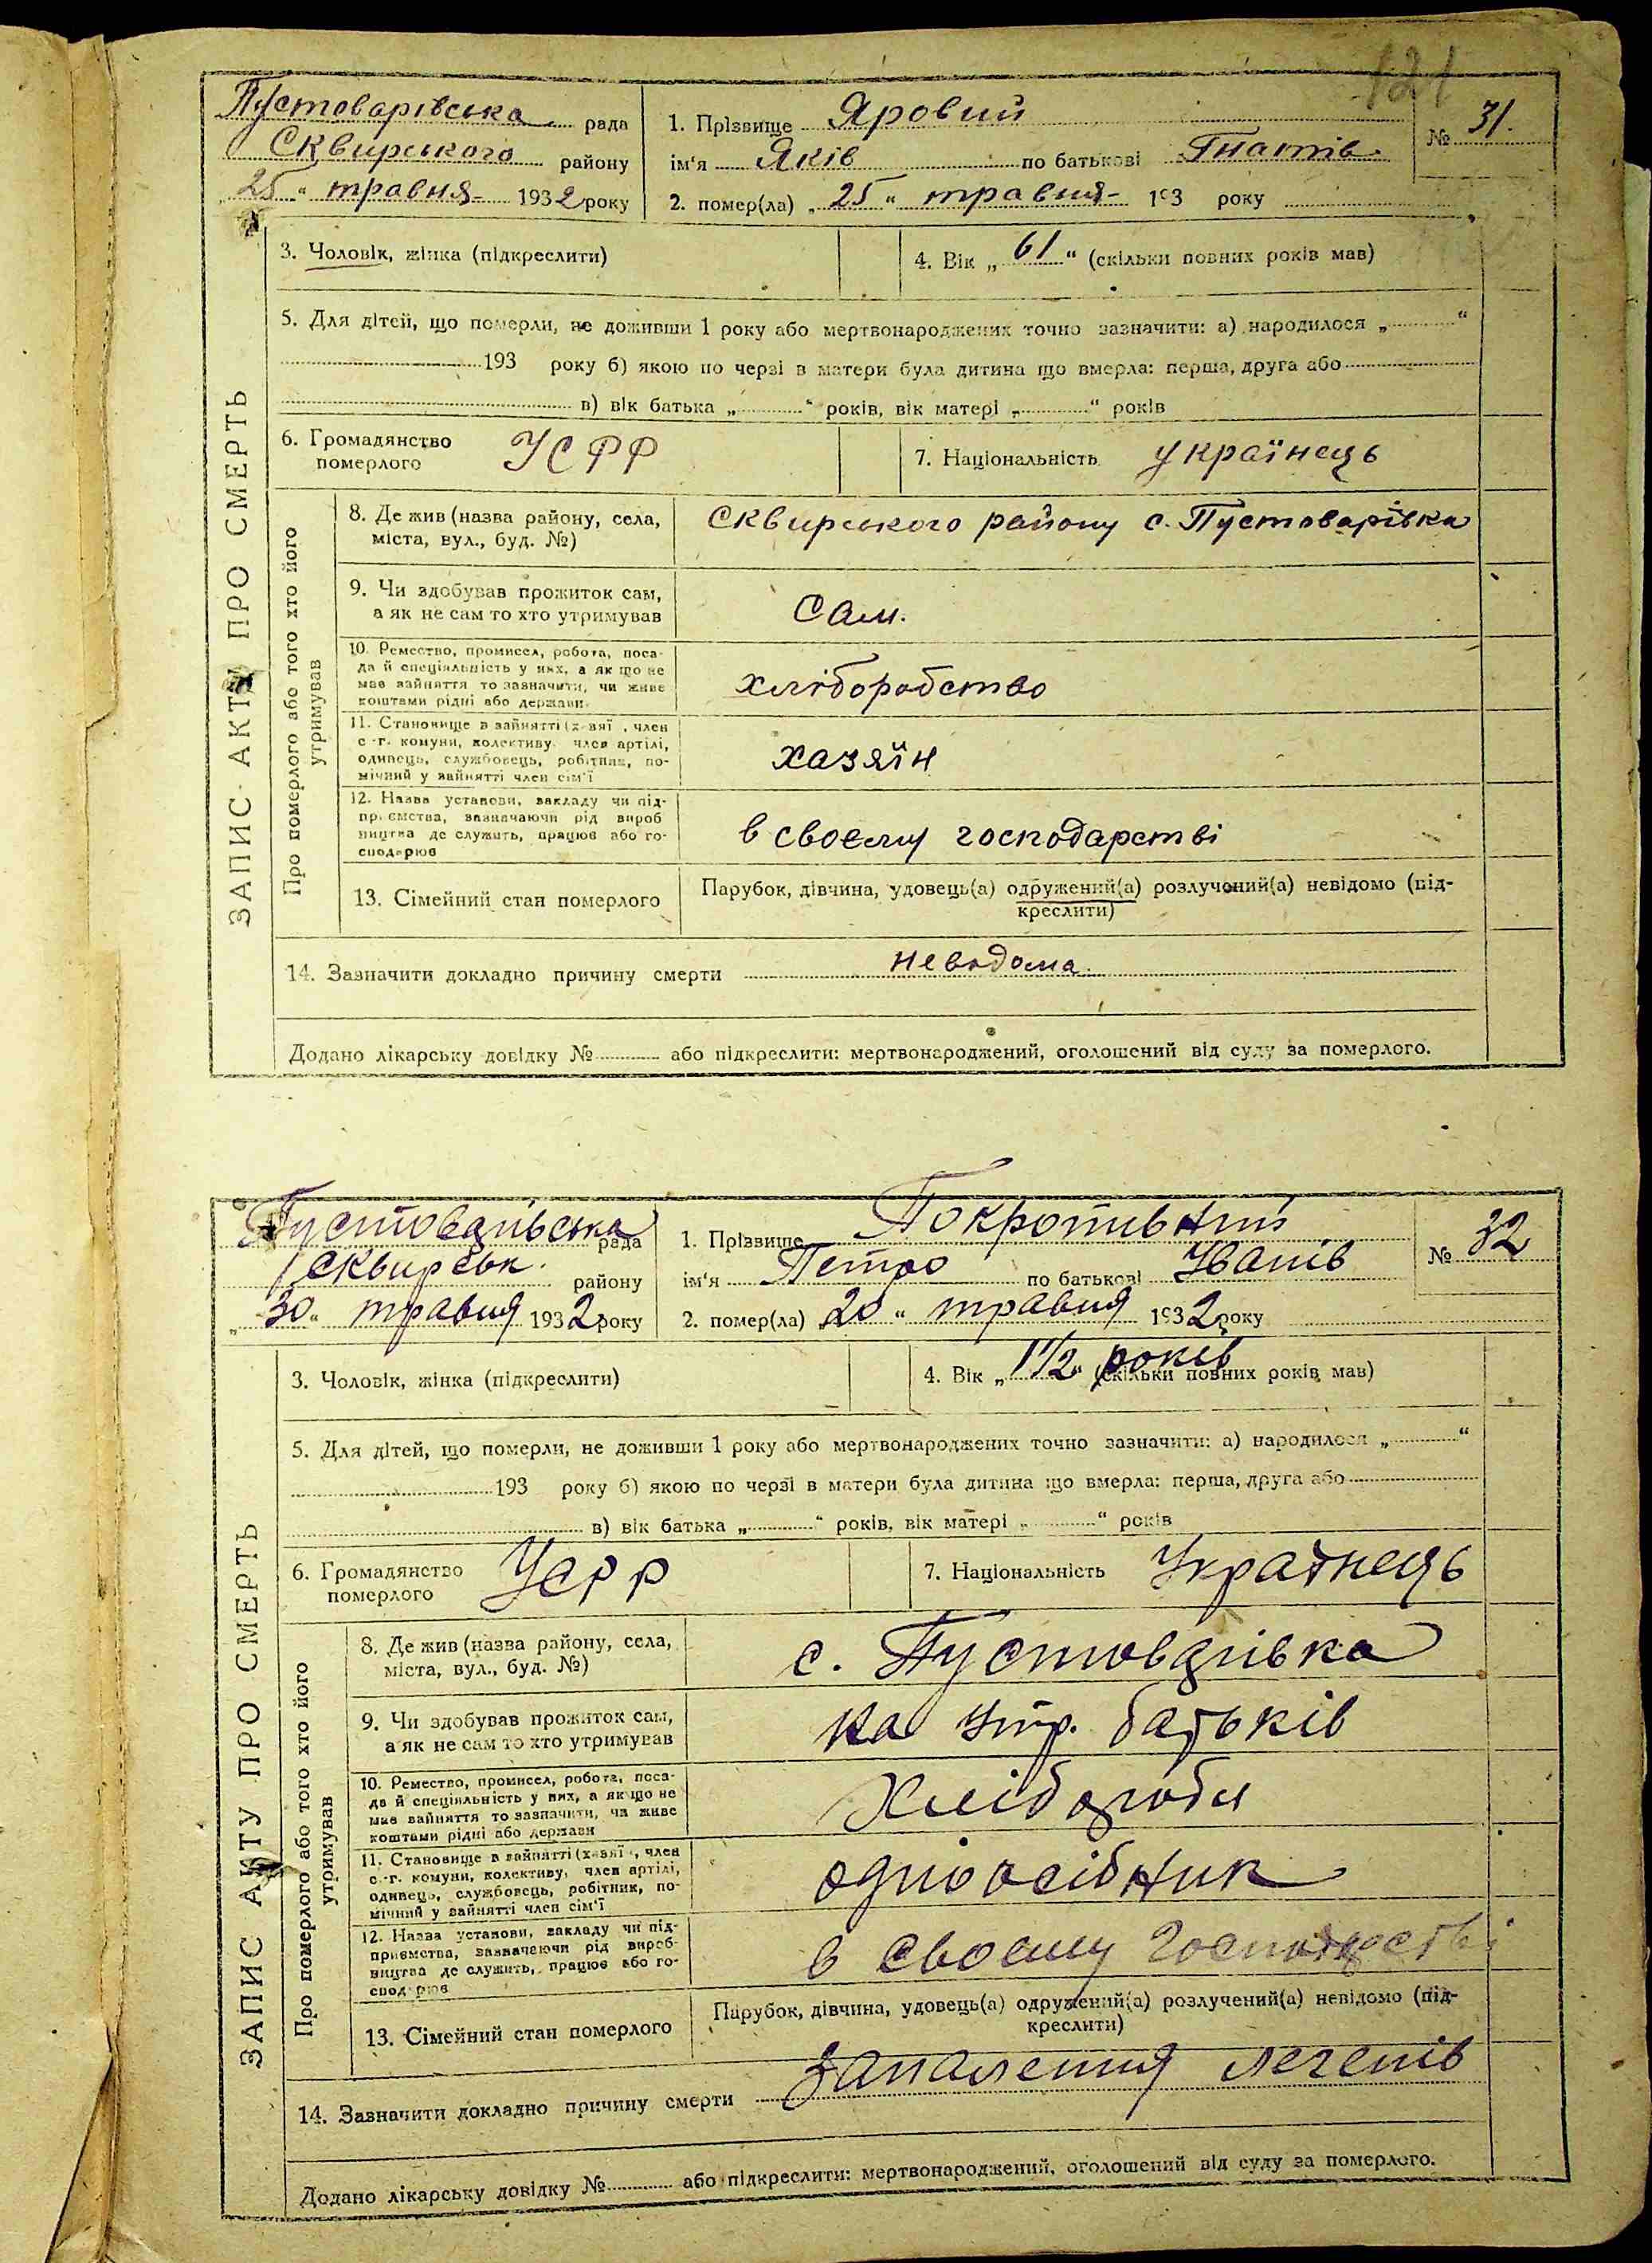 121
Пустоварівська рада
Сквирського району
„25“ травня 1932 року
1. Прізвище Яровий
ім'я Яків по батькові Гнатів
2. помер(ла) „25“ травня 193 року
№ 31.
ЗАПИС АКТУ ПРО СМЕРТЬ
3. Чоловік, жінка (підкреслити)
4. Вік „61“ (скільки повних років мав)
5. Для дітей, що померли, не доживши 1 року або мертвонароджених точно зазначити: а) народилося „ “
193 року б) якою по черзі в матери була дитина що вмерла: перша, друга або
в) вік батька „ “ років, вік матері „ “ років
6. Громадянство
померлого
УСРР
7. Національність українець
Про померлого або того хто його
утримував
8. Де жив (назва району, села,
міста, вул., буд. №)
Сквирського району с. Пустоварівка
9. Чи здобував прожиток сам,
а як не сам то хто утримував
Сам.
10. Ремество, промисел, робота, поса-
да й спеціяльність у них, а як що не
має зайняття то зазначити, чи живе
коштами рідні або держави
хліборобство
11. Становище в зайнятті (х-вяї , член
с.-г. комуни, колективу, член артілі,
одинець, службовець, робітник, по-
мічний у зайнятті член сім'ї
хазяїн
12. Назва установи, закладу чи під-
приємства, зазначаючи рід вироб
ництва де служить, працює або го-
сподарює
в своєму господарстві
13. Сімейний стан померлого
Парубок, дівчина, удовець(а) одружений(а) розлучений(а) невідомо (під-
креслити)
14. Зазначити докладно причину смерти невідома.
Додано лікарську довідку № або підкреслити: мертвонароджений, оголошений від суду за померлого.
Пустоварівська рада
Сквирськ. району
„30“ травня 1932 року
1. Прізвище Покропивний
ім'я Петро по батькові Іванів
2. помер(ла) „20“ травня 1932 року
№ 32
ЗАПИС АКТУ ПРО СМЕРТЬ
3. Чоловік, жінка (підкреслити)
4. Вік „1 1/2“ років (скільки повних років мав)
5. Для дітей, що померли, не доживши 1 року або мертвонароджених точно зазначити: а) народилося „ “
193 року б) якою по черзі в матери була дитина що вмерла: перша, друга або
в) вік батька „ “ років, вік матері „ “ років
6. Громадянство
померлого
УСРР
7. Національність Українець
Про померлого або того хто його
утримував
8. Де жив (назва району, села,
міста, вул., буд. №)
с. Пустоварівка
9. Чи здобував прожиток сам,
а як не сам то хто утримував
на утр. батьків
10. Ремество, промисел, робота, поса-
да й спеціяльність у них, а як що не
має зайняття то зазначити, чи живе
коштами рідні або держави
Хлібороби
11. Становище в зайнятті (х-вяї , член
с.-г. комуни, колективу, член артілі,
одинець, службовець, робітник, по-
мічний у зайнятті член сім'ї
одноосібник
12. Назва установи, закладу чи під-
приємства, зазначаючи рід вироб-
ництва де служить, працює або го-
сподарює
в своєму господарстві
13. Сімейний стан померлого
Парубок, дівчина, удовець(а) одружений(а) розлучений(а) невідомо (під-
креслити)
14. Зазначити докладно причину смерти запалення легенів
Додано лікарську довідку № або підкреслити: мертвонароджений, оголошений від суду за померлого.